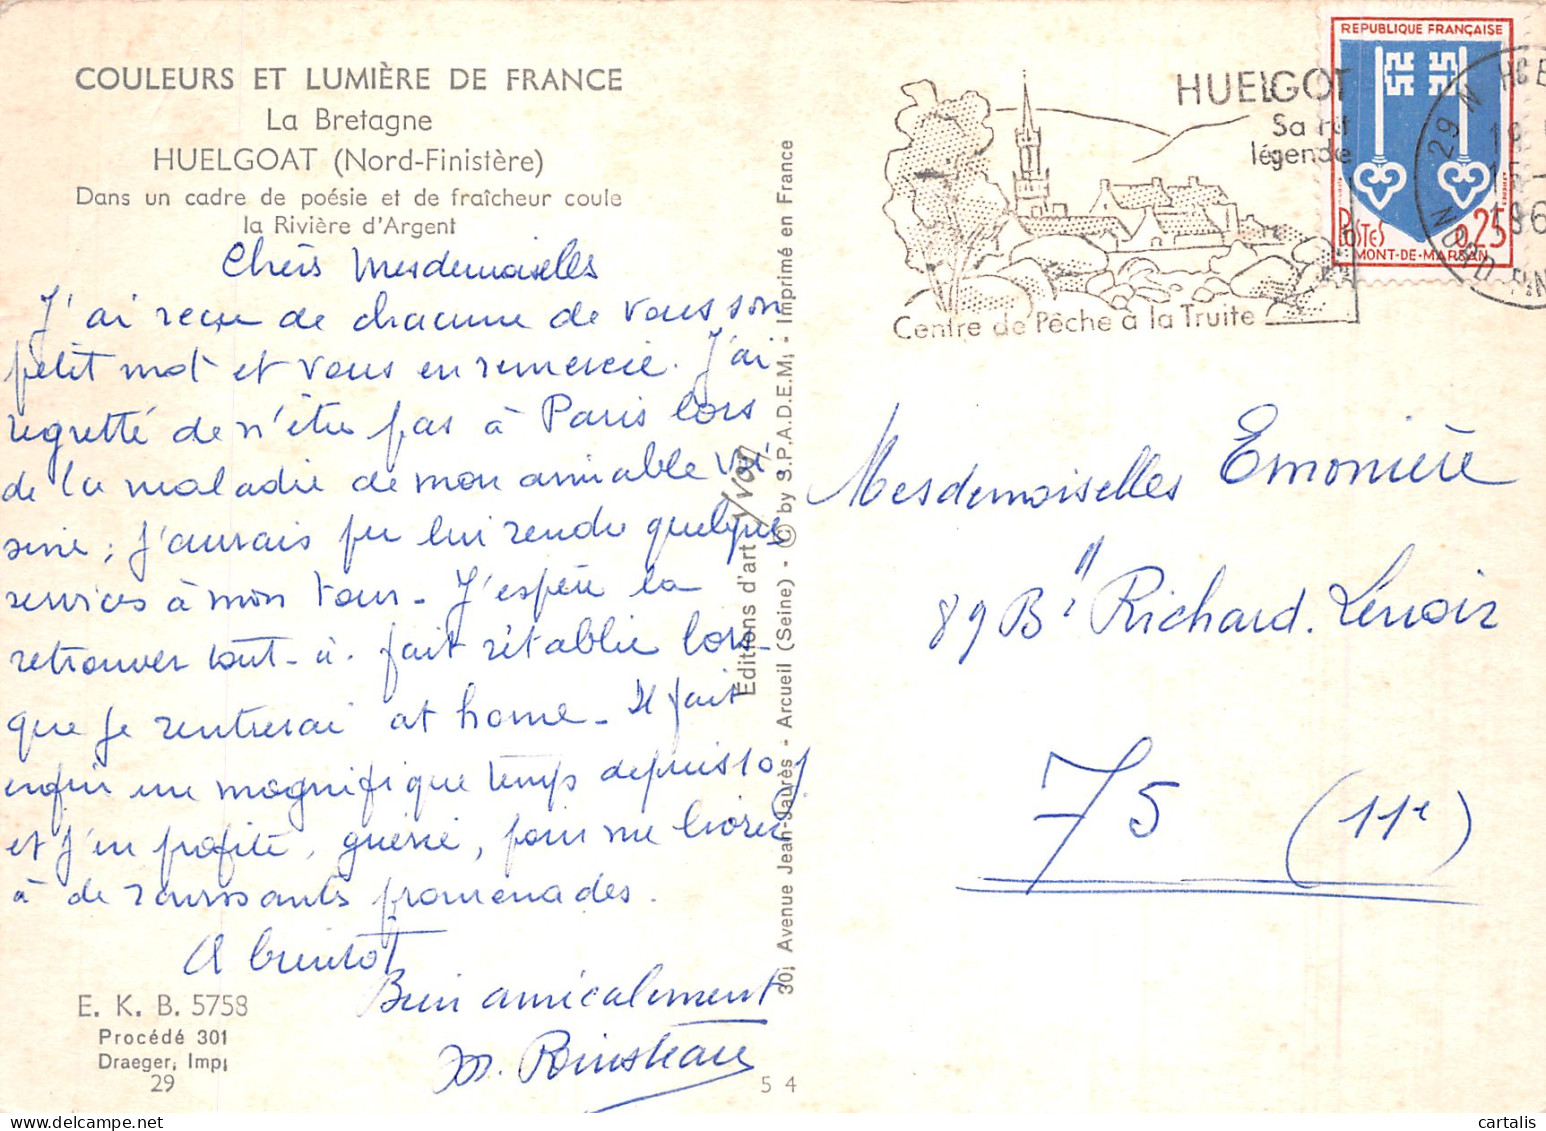 COULEURS ET LUMIÈRE DE FRANCE
La Bretagne
HUELGOAT (Nord-Finistère)
Dans un cadre de poésie et de fraîcheur coule
la Rivière d'Argent
Chères Mesdemoiselles
J'ai reçu de chacune de vous son
petit mot et vous en remercie. J'ai
regretté de n'être pas à Paris lors
de la maladie de mon aimable voi-
sine ; j'aurais pu lui rendre quelques
services à mon tour - J'espère la
retrouver tout-à-fait rétablie lors-
que je rentrerai at home - Il fait
enfin un magnifique temps depuis 10 j
et j'en profite, guérie, pour me livrer
à de ravissants promenades.
A bientôt
Bien amicalement
E. K. B. 5758
Procédé 301
Draeger, Imp.
29
5 4
Editions d'art Yvon
30, Avenue Jean-Jaurès - Arcueil (Seine) - © by S.P.A.D.E.M. - Imprimé en France
HUELGOT
Sa
légende
Centre de Pêche à la Truite
REPUBLIQUE FRANÇAISE
POSTES 0,25
MONT-DE-MARSAN
29 N
NORD-FIN
Mesdemoiselles Emonière
89 Bd Richard. Lenoir
75 (11e)